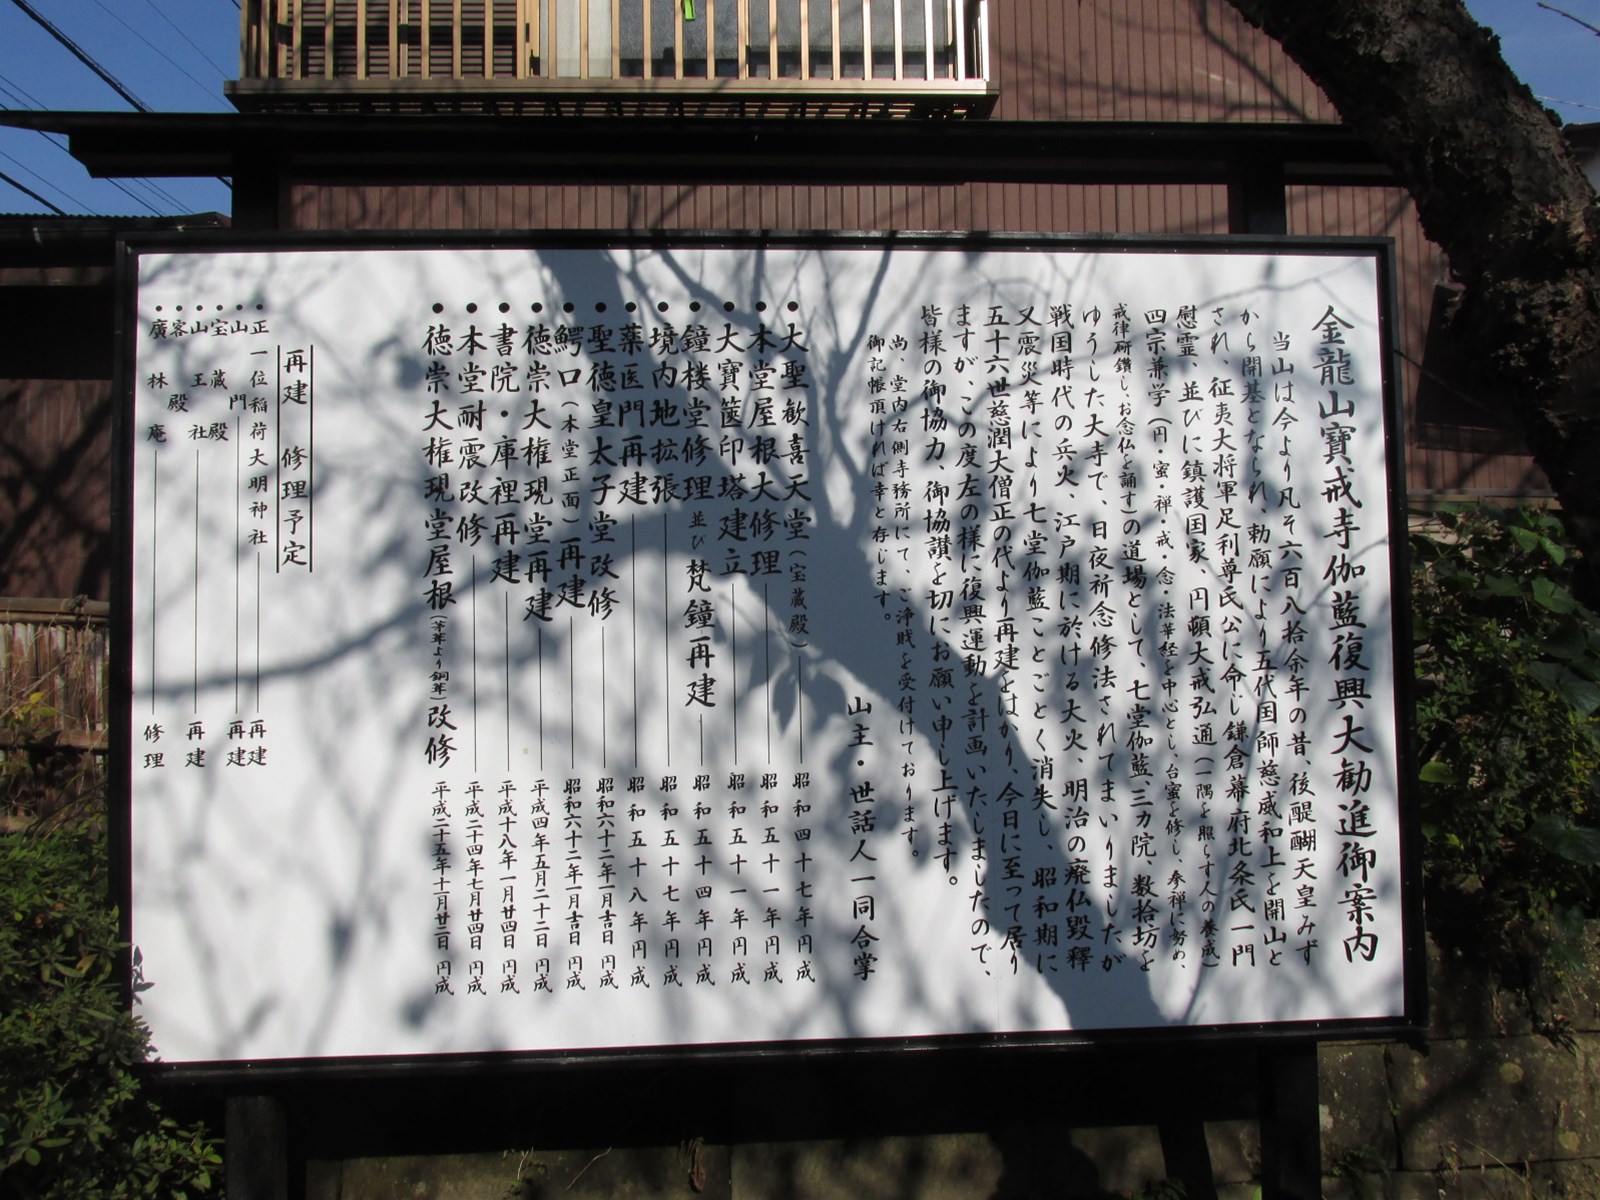 金龍山寶戒寺伽藍復興大勧進御案内
当山は今より凡そ六百八拾余年の昔、後醍醐天皇みず
から開基となられ、勅願により五代国師慈威和上を開山と
され、征夷大将軍足利尊氏公に命じ鎌倉幕府北条氏一門
慰霊、並びに鎮護国家、円頓大戒弘通(一隅を照らす人の養成)
四宗兼学(円・密・禅・戒・念・法華経を中心とし、台密を修し、参禅に努め、
戒律研鑽し、お念仏を誦す)の道場として、七堂伽藍、三カ院、数拾坊を
ゆうした大寺で、日夜祈念修法されてまいりましたが
戦国時代の兵火、江戸期に於ける大火、明治の廃仏毀釋
又震災等により七堂伽藍ことごとく消失し、昭和期に
五十六世慈潤大僧正の代より再建をはかり、今日に至って居り
ますが、この度左の様に復興運動を計画いたしましたので、
皆様の御協力、御協讃を切にお願い申し上げます。
尚、堂内右側寺務所にて、ご浄財を受付けております。
御記帳頂ければ幸と存じます。
山主・世話人一同合掌
●大聖歓喜天堂(宝蔵殿) 昭和四十七年円成
●本堂屋根大修理 昭和五十一年円成
●大寶篋印塔建立 昭和五十一年円成
●鐘楼堂修理並び梵鐘再建 昭和五十四年円成
●境内地拡張 昭和五十七年円成
●薬医門再建 昭和五十八年円成
●聖徳皇太子堂改修 昭和六十二年一月吉日円成
●鰐口(本堂正面)再建 昭和六十二年一月吉日円成
●徳崇大権現堂再建 平成四年五月二十二日円成
●書院・庫裡再建 平成十八年一月廿四日円成
●本堂耐震改修 平成二十四年七月廿四日円成
●徳崇大権現堂屋根(茅葺より銅葺)改修 平成二十五年十一月廿二日円成
再建 修理予定
●正一位稲荷大明神社 再建
●山門 再建
●宝蔵殿
●山王社 再建
●客殿
●廣林庵 修理